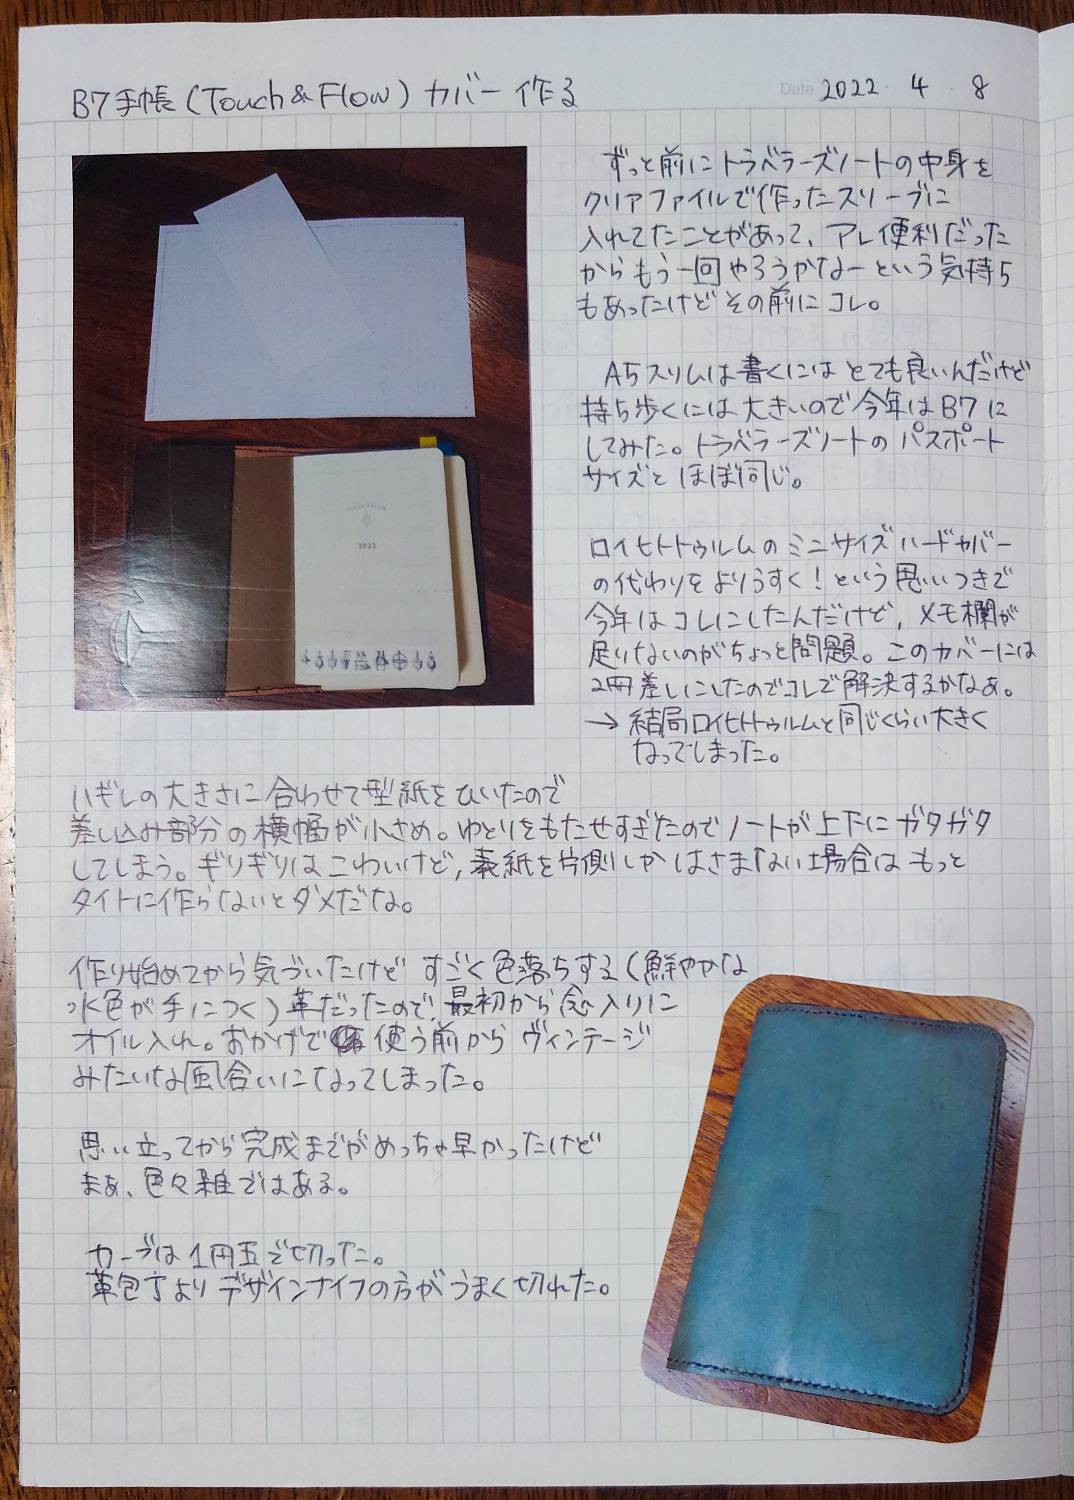 B7手帳(Touch&Flow)カバー作る
Date 2022 4 8
ずっと前にトラベラーズノートの中身を
クリアファイルで作ったスリーブに
入れてたことがあって、アレ便利だった
からもう一回やろうかなーという気持ち
もあったけどその前にコレ。
A5スリムは書くにはとても良いんだけど
持ち歩くには大きいので今年はB7に
してみた。トラベラーズノートのパスポート
サイズとほぼ同じ。
ロイヒトトゥルムのミニサイズハードカバー
の代わりをよりうすく!という思いつきで
今年はコレにしたんだけど、メモ欄が
足りないのがちょっと問題。このカバーには
2冊差しにしたのでコレで解決するかなぁ。
→ 結局ロイヒトトゥルムと同じくらい大きく
なってしまった。
2022
ハギレの大きさに合わせて型紙をひいたので
差し込み部分の横幅が小さめ。ゆとりをもたせすぎたのでノートが上下にガタガタ
してしまう。ギリギリはこわいけど,表紙を片側しかはさまない場合はもっと
タイトに作らないとダメだな。
作り始めてから気づいたけどすごく色落ちする(鮮やかな
水色が手につく)革だったので、最初から念入りに
オイル入れ。おかげで使う前からヴィンテージ
みたいな風合いになってしまった。
思い立ってから完成までがめっちゃ早かったけど
まぁ、色々雑ではある。
カーブは1円玉で切った。
革包丁よりデザインナイフの方がうまく切れた。